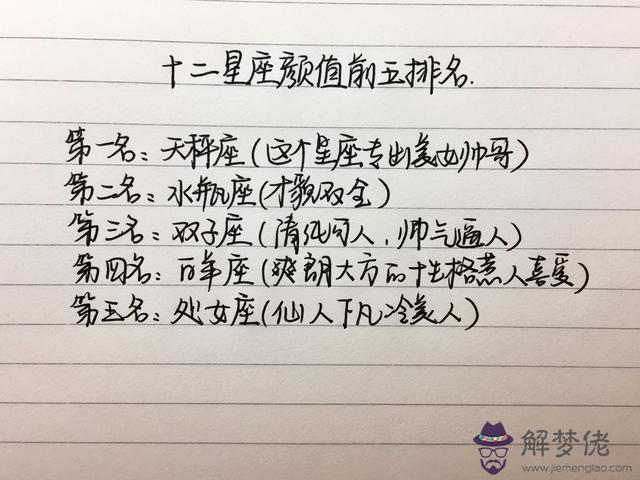 十二星座颜值前五排名.
第一名：天秤座（这个星座专出美女帅哥）
第二名：水瓶座（才貌双全）
第三名：双子座（清纯可人，帅气逼人）
第四名：白羊座（爽朗大方的性格惹人喜爱）
第五名：处女座（仙人下凡冷美人）
解梦佬
www.jiemenglao.com